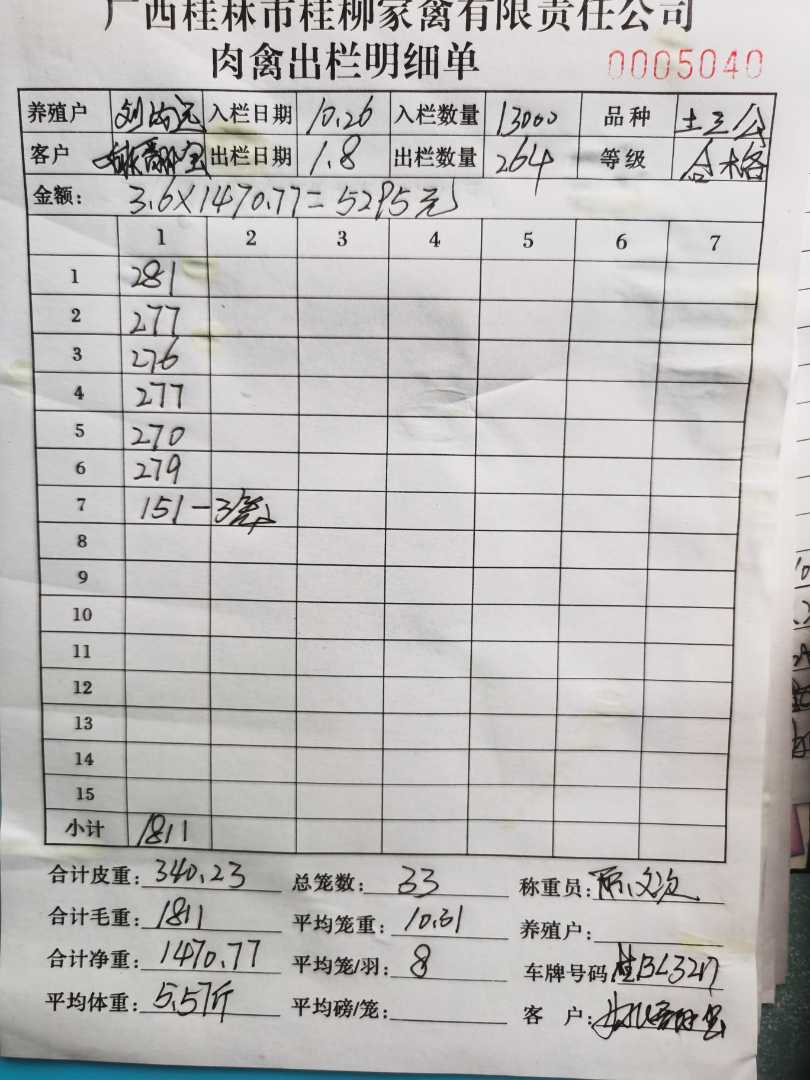 广西桂林市桂柳家禽有限责任公司
肉禽出栏明细单 0005040
养殖户 入栏日期 10.26 入栏数量 13000 品种 土三公
客户 出栏日期 1.8 出栏数量 264 等级 合格
金额: 3.6×1470.77=5295元
1 2 3 4 5 6 7
1 281
2 277
3 276
4 277
5 270
6 279
7 151-3笼
8
9
10
11
12
13
14
15
小计 1811
合计皮重: 340.23 总笼数: 33 称重员:
合计毛重: 1811 平均笼重: 10.31 养殖户:
合计净重: 1470.77 平均笼/羽: 8 车牌号码 桂BL3217
平均体重: 5.57斤 平均磅/笼: 客 户: